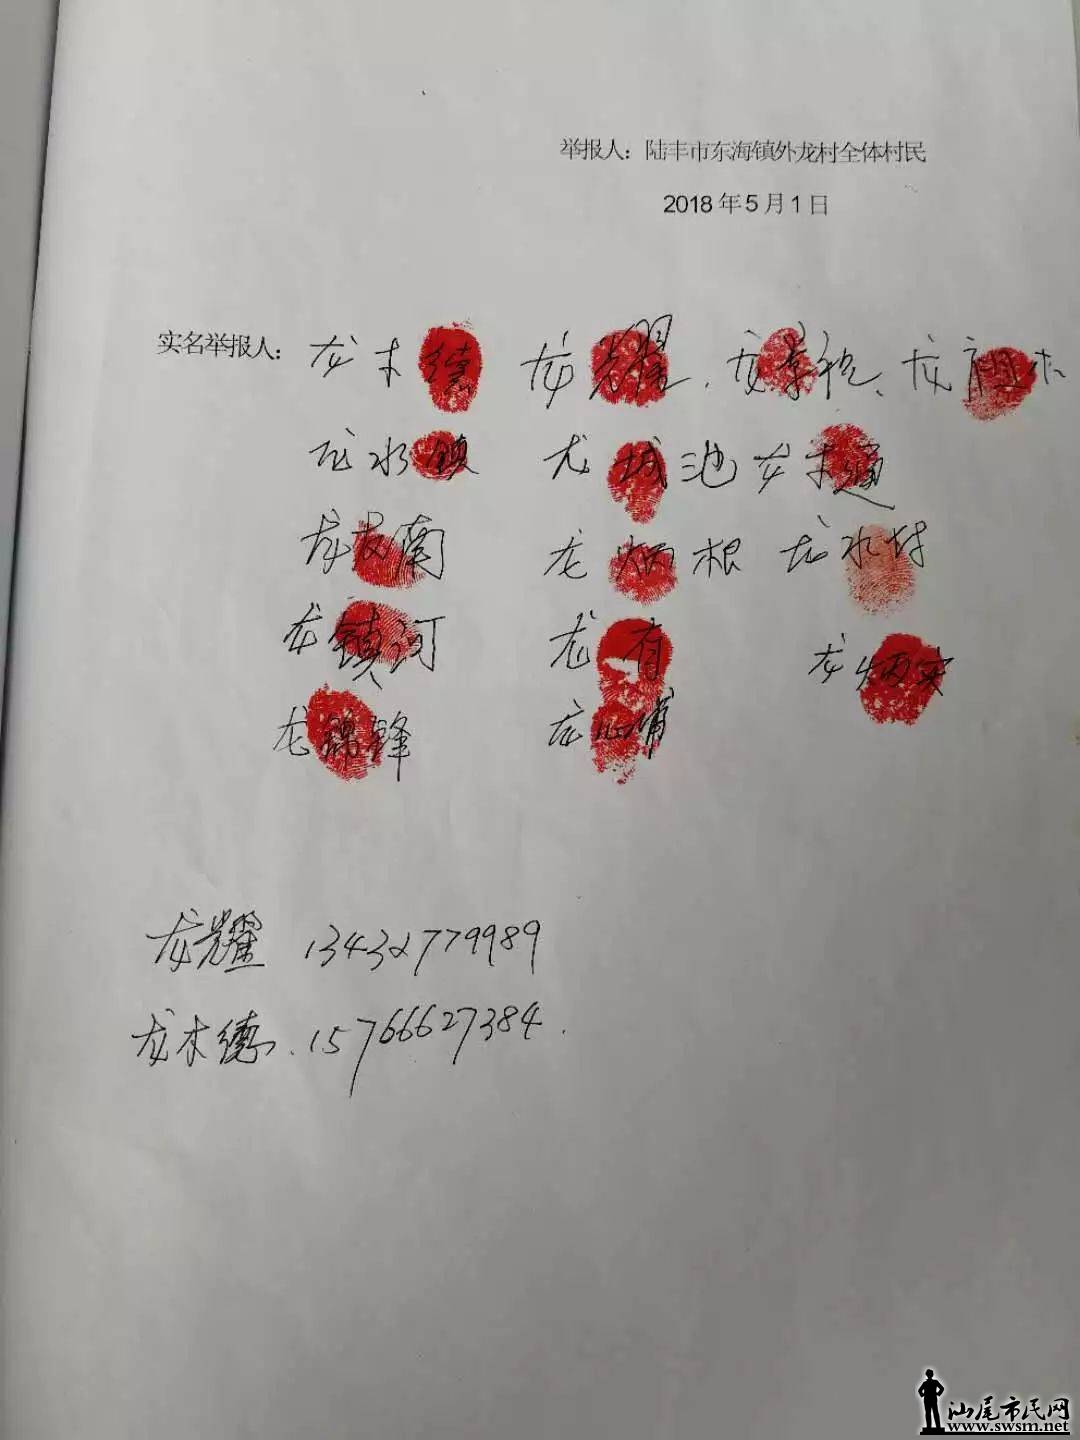 举报人：陆丰市东海镇外龙村全体村民
2018年5月1日
实名举报人：龙木德 龙耀、龙 、龙祖木
龙水镇 龙城池 龙木通
龙友南 龙炳根 龙水
龙镇河 龙有 龙炳
龙锦锋 龙
龙耀 13432779989
龙木德.15766627384.
汕尾市民网
www.swsm.net